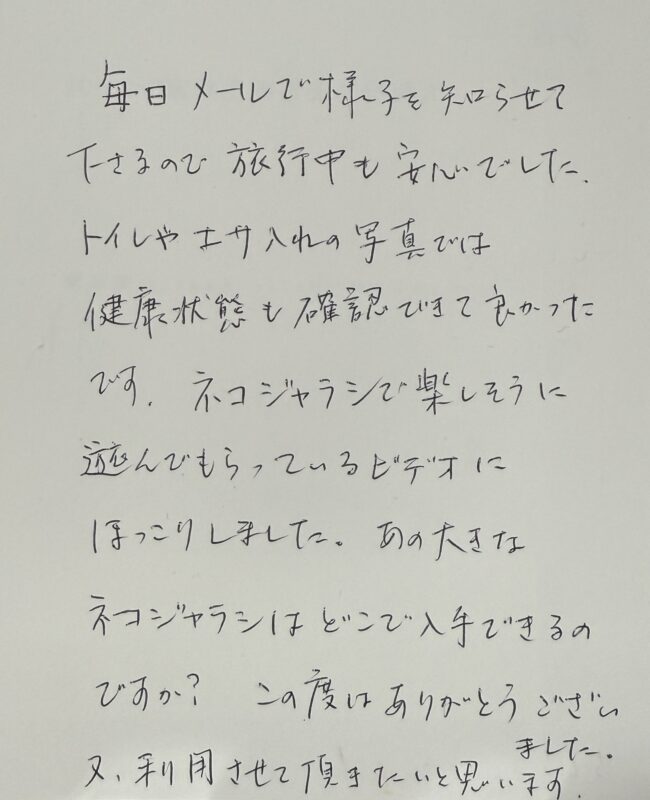 毎日メールで様子を知らせて
下さるので旅行中も安心でした.
トイレやエサ入れの写真では
健康状態も確認できて良かった
です. ネコジャラシで楽しそうに
遊んでもらっているビデオに
ほっこりしました。あの大きな
ネコジャラシはどこで入手できるの
ですか? この度はありがとうござい
ました。
又、利用させて頂きたいと思います.